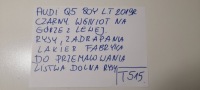 AUDI Q5 80Y LT 2019R
CZARNY WGNIOT NA
GÓRZE Z LEWEJ
RYSY, ZADRAPANA
LAKIER FABRYKA
DO PRZEMALOWANIA
LISTWA DOLNA RYSY
T515